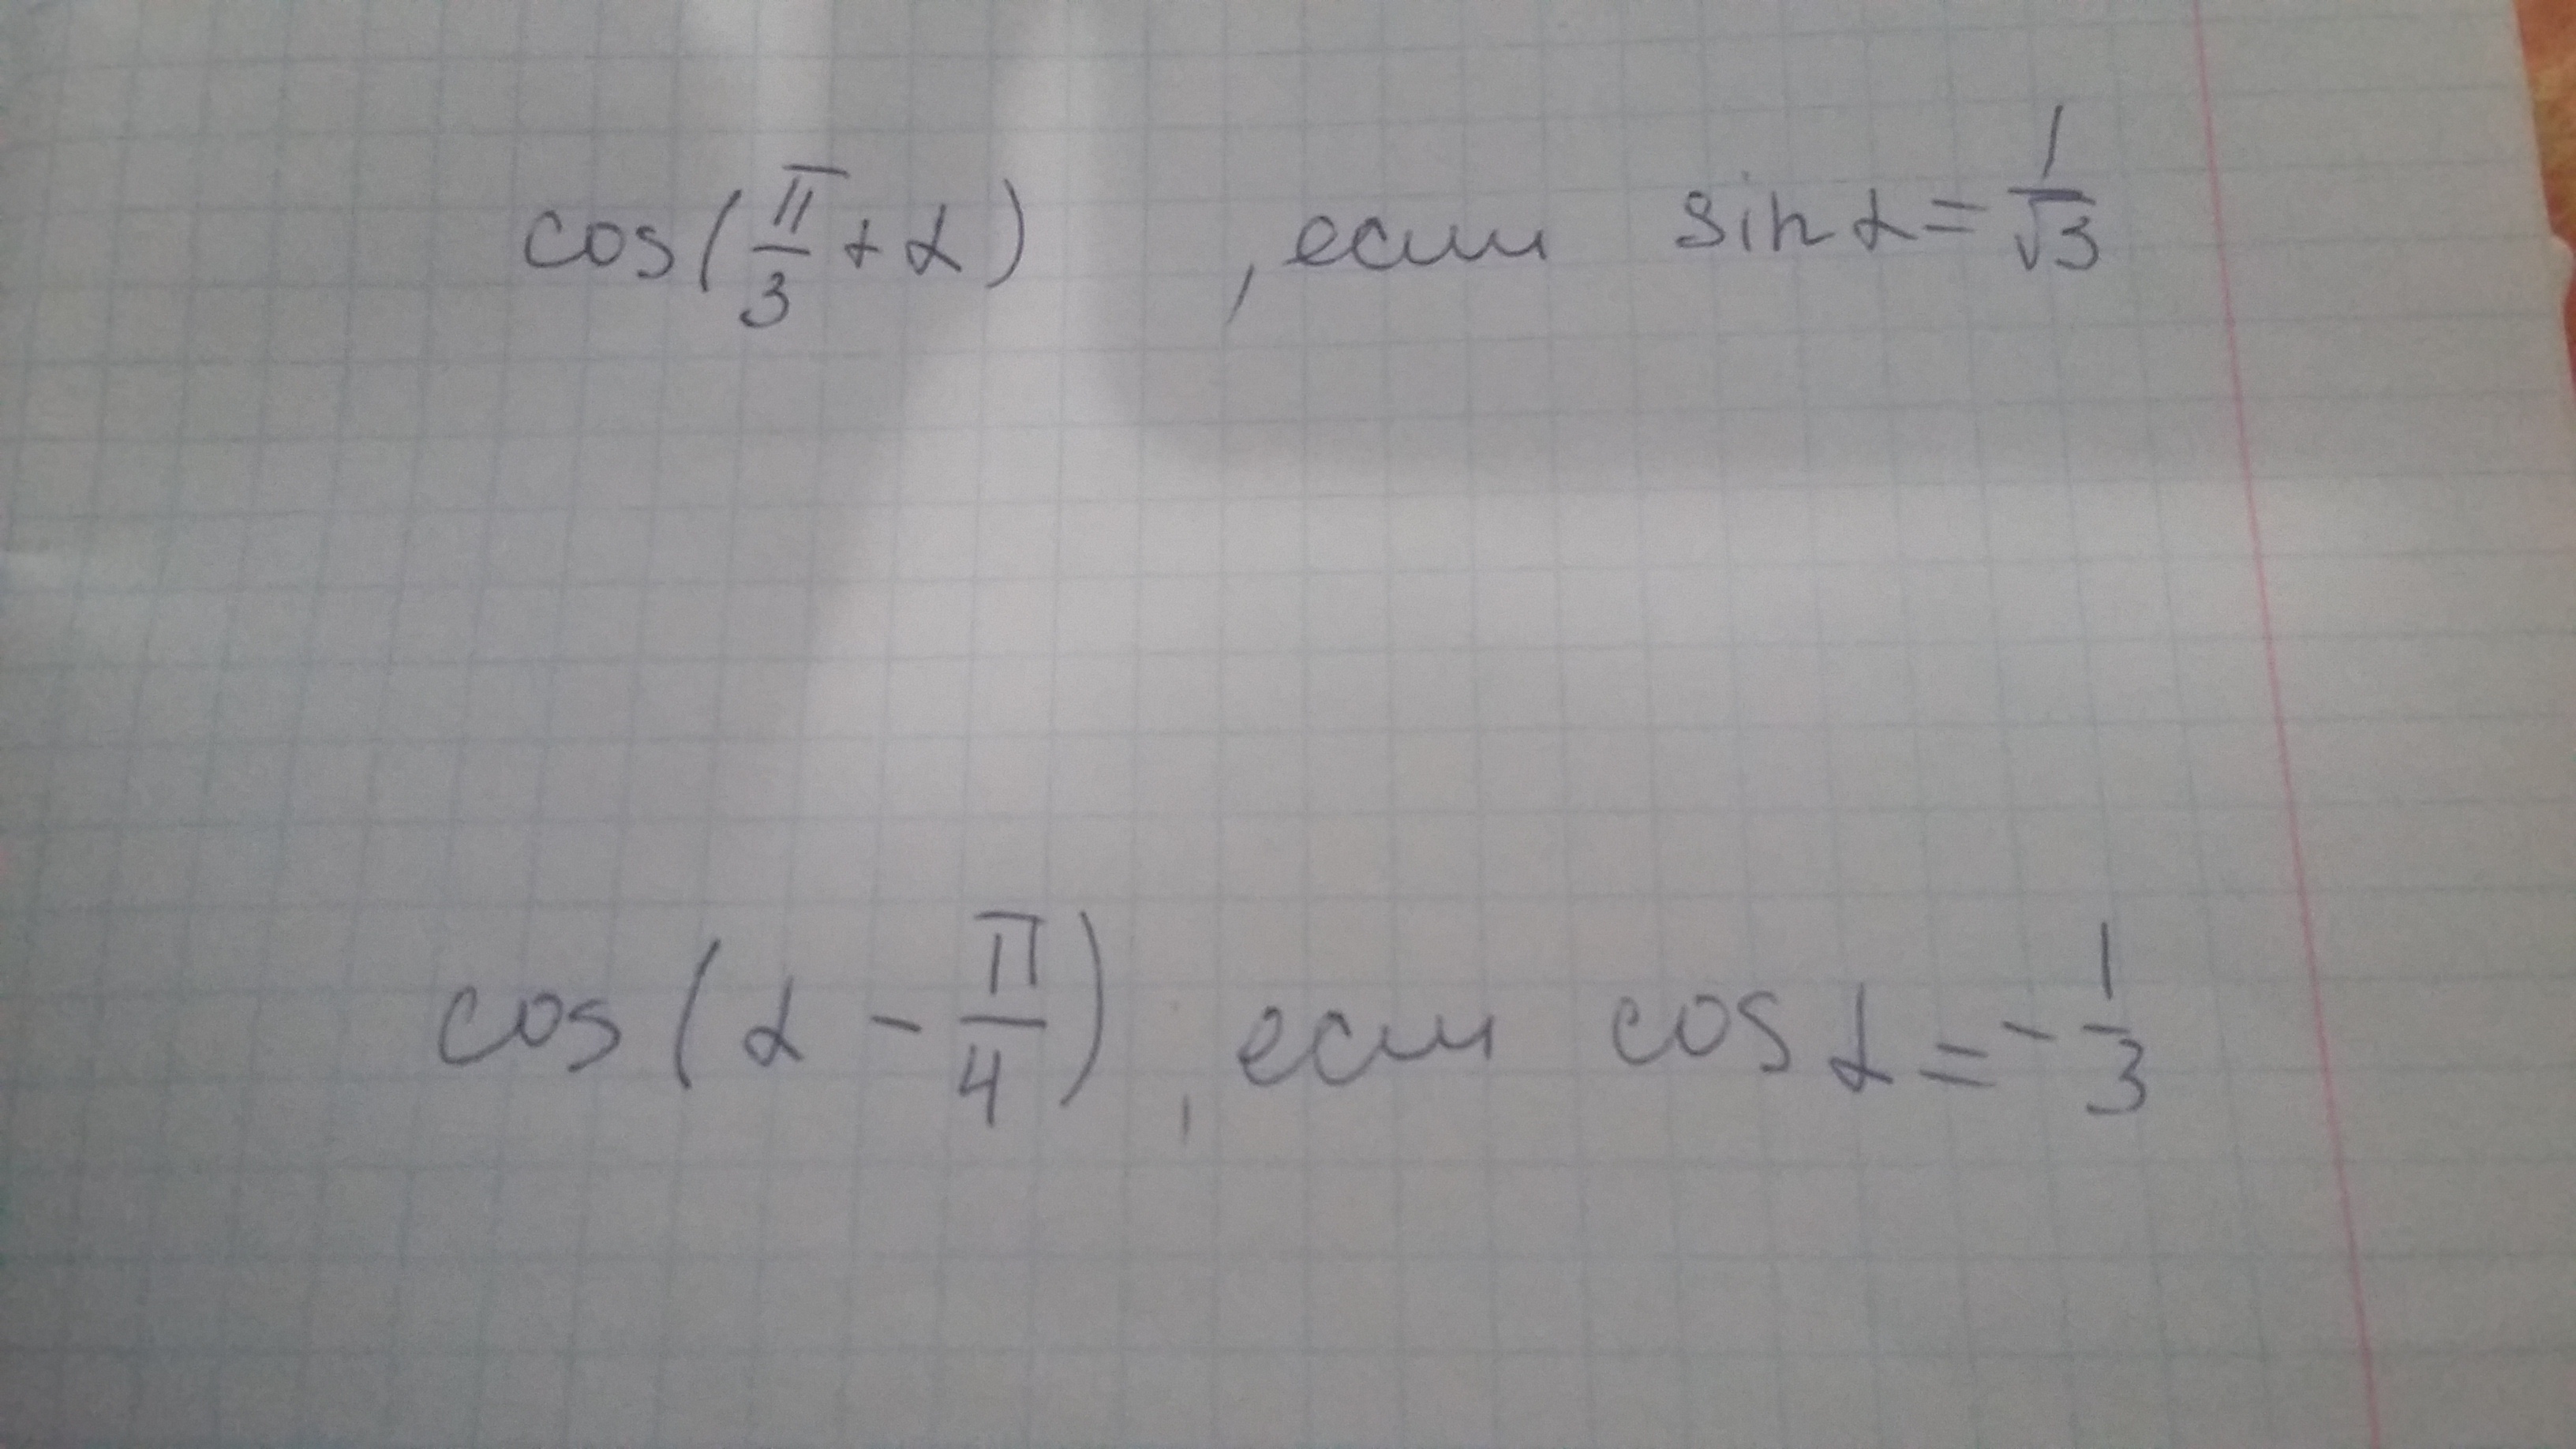 cos(π/3 + α) , если sin α = 1/√3
cos(α - π/4) , если cos α = - 1/3